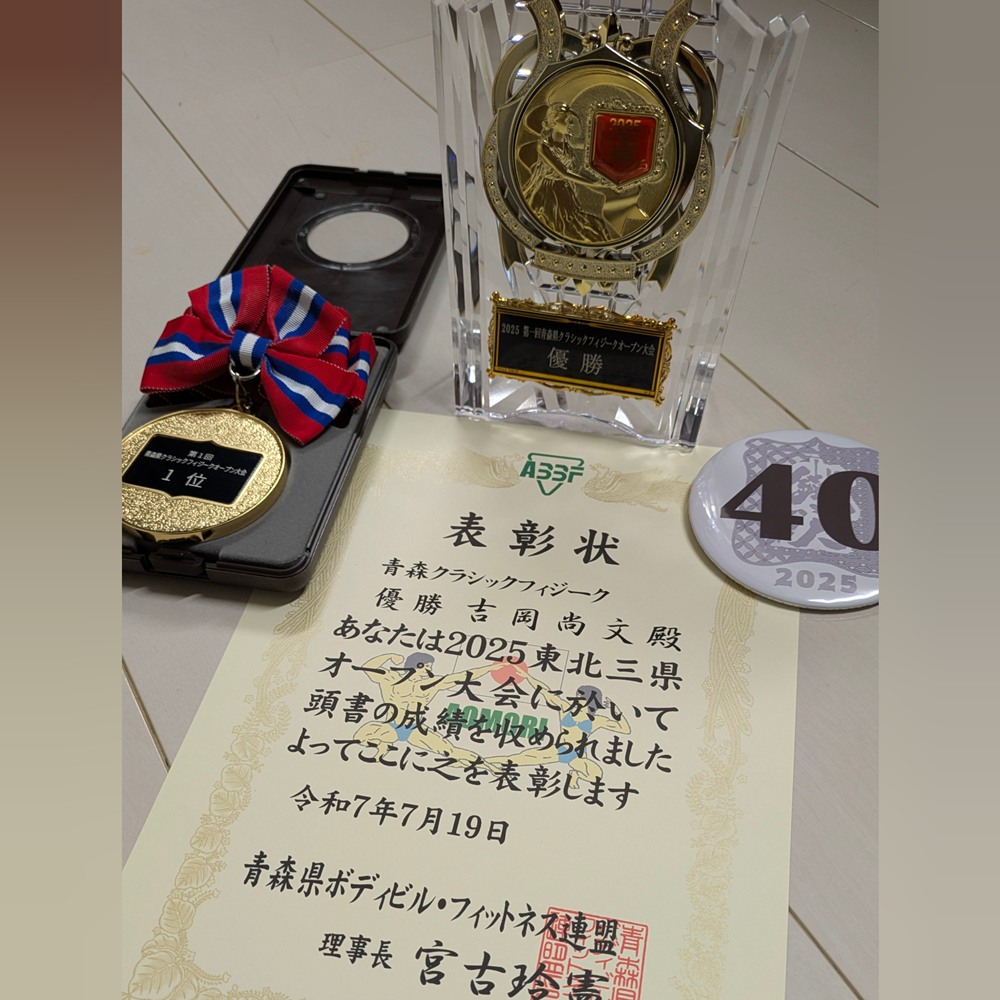 2025
2025 第一回青森県クラシックフィジークオープン大会
優勝
第1回
青森県クラシックフィジークオープン大会
1位
40
2025
ABBF
表彰状
青森クラシックフィジーク
優勝 吉岡尚文殿
あなたは2025東北三県
オープン大会に於いて
頭書の成績を収められました
よってここに之を表彰します
AOMORI
令和7年7月19日
青森県ボディビル・フィットネス連盟
理事長 宮古玲憲